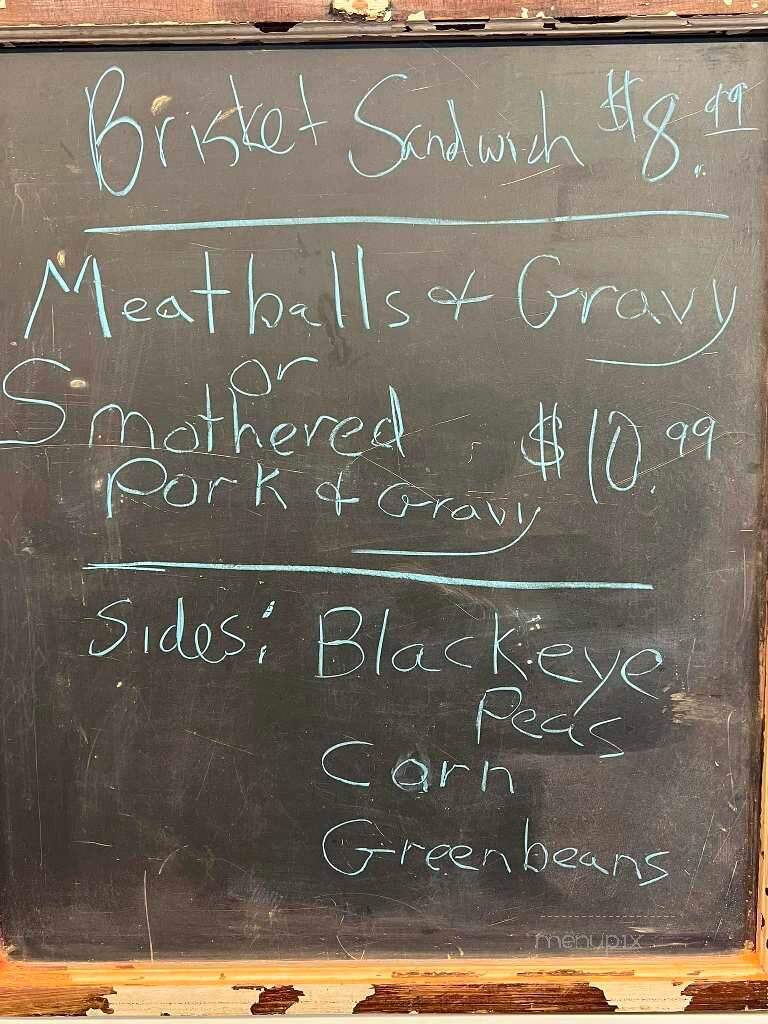 Brisket Sandwich $8.99
Meatballs & Gravy
or
Smothered $10.99
Pork & Gravy
Sides: Blackeye
Peas
Corn
Greenbeans
menupix